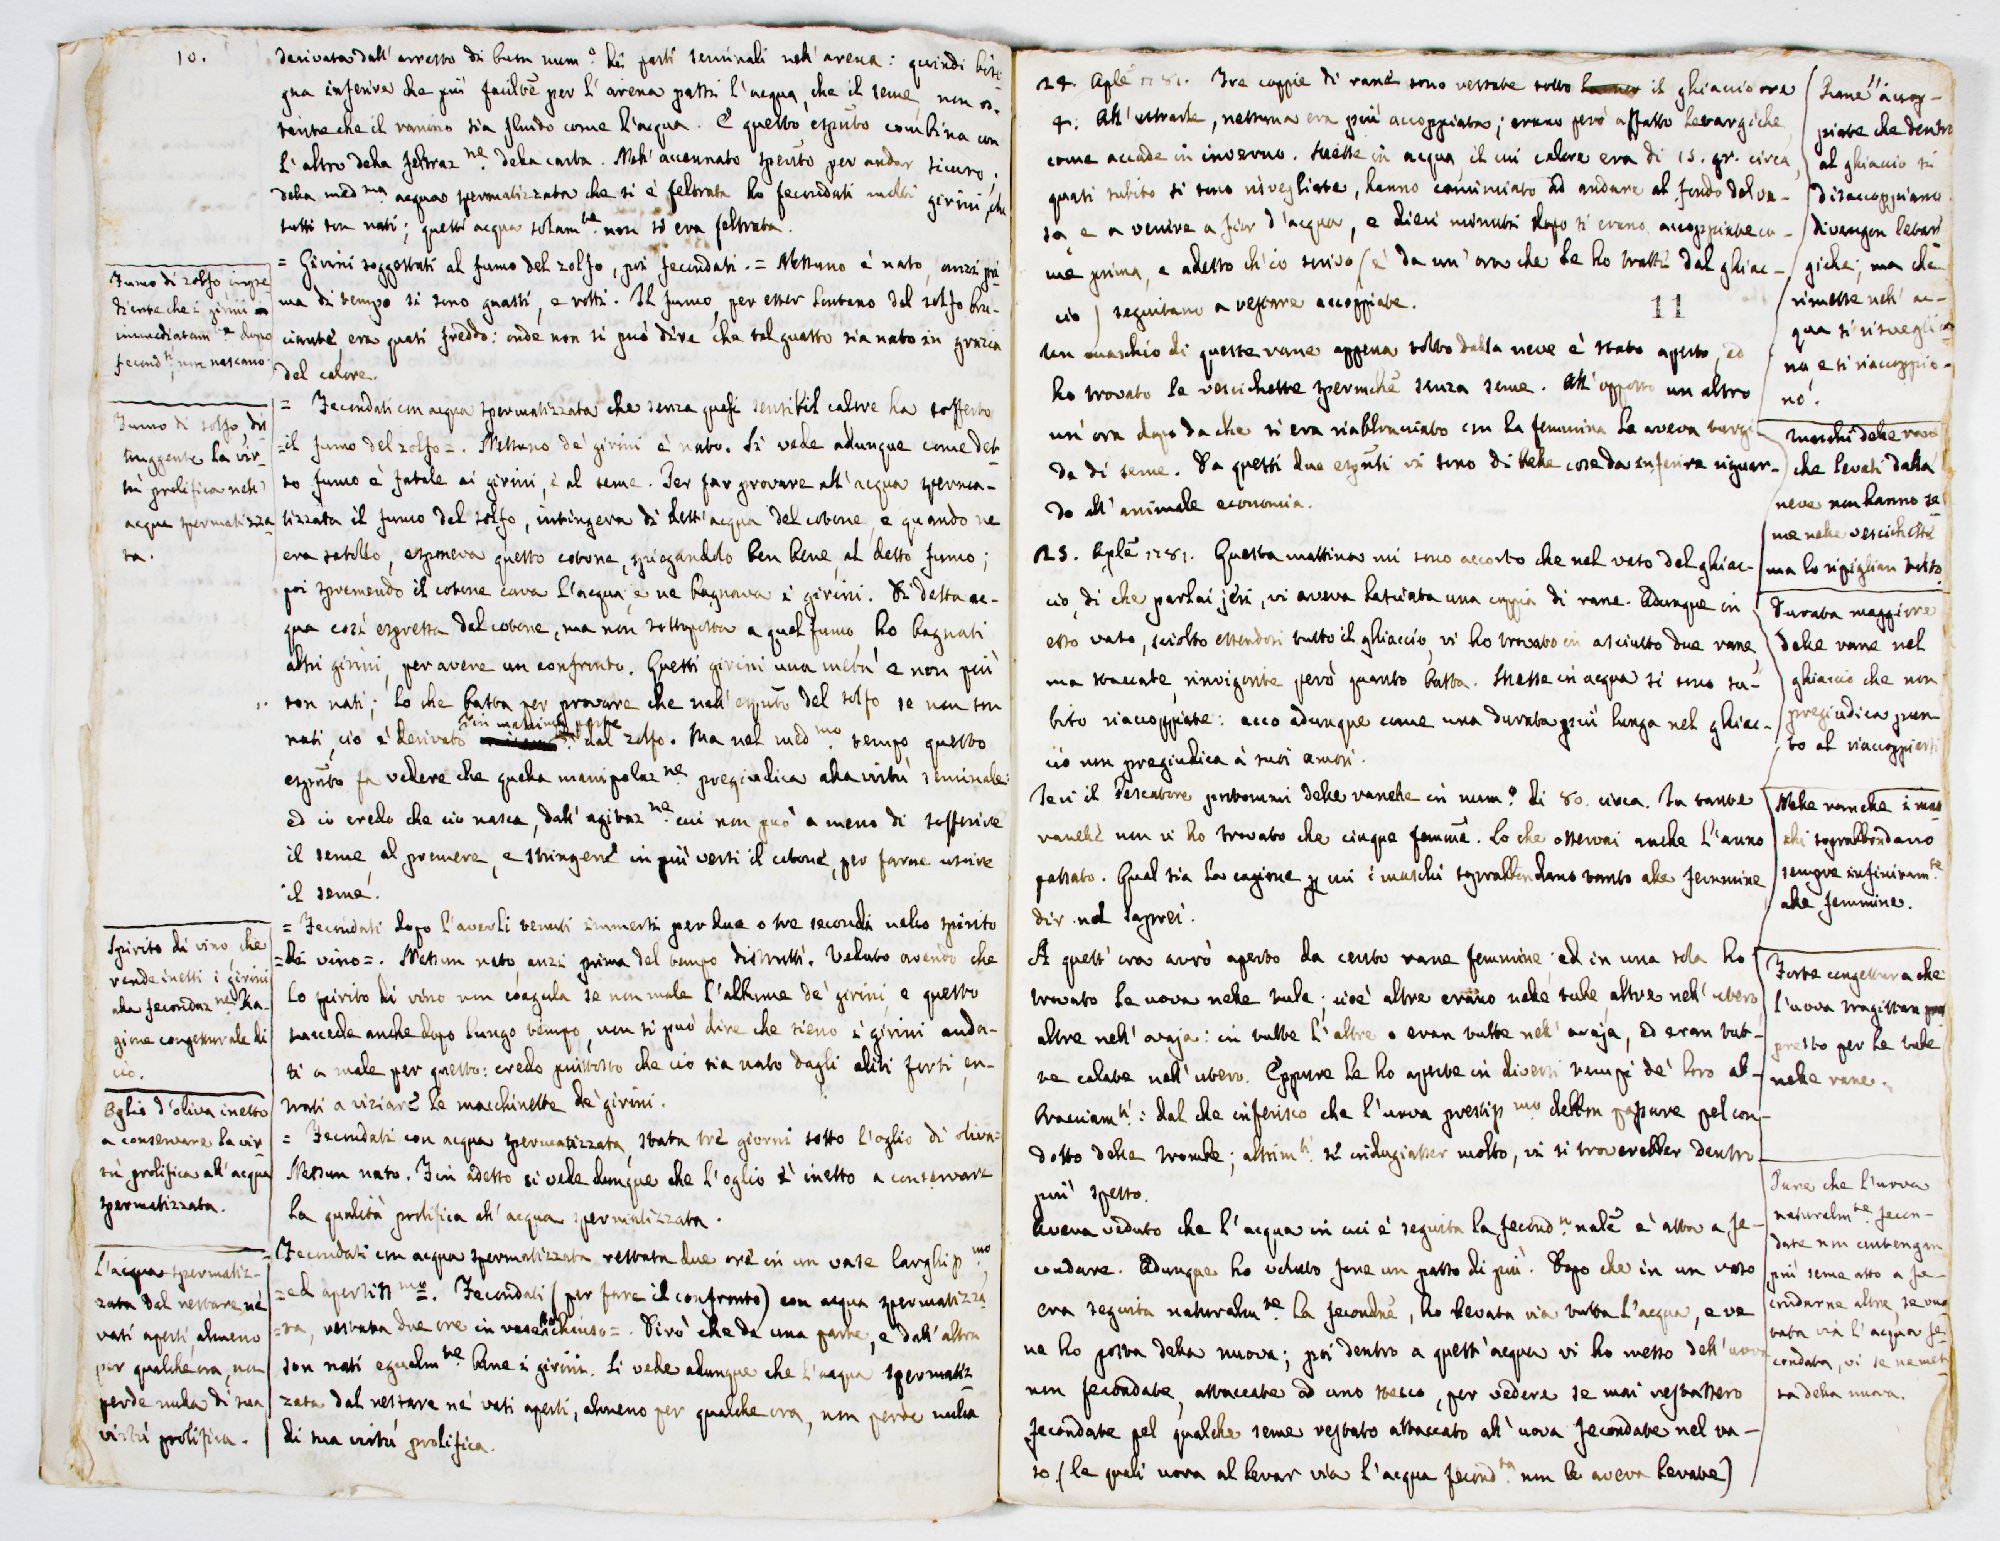 10.
derivata dall'arresto di buon num.º di parti seminali nell'arena: quindi biso-
gna inferire che più facilm̃e per l'arena passi l'acqua, che il seme, non o-
stante che il ranino sia fluido come l'acqua. E questo esp̃uto combina con
l'altro della feltraz.ne della carta. Nell'accennato sperito per andar sicuro,
della med.ma acqua spermatizzata che si è feltrata ho fecondati molti girini, che
tutti son nati; questi acqua solam.te non si era feltrata.
= Girini soggettati al fumo del zolfo, poi fecondati. = Nessuno è nato, anzi pri-
ma di tempo si sono guasti, e rotti. Il fumo, per esser lontano dal solfo bru-
ciante, era quasi freddo: onde non si può dire che tal guasto sia nato in grazia
del calore.
= Fecondati con acqua spermatizzata che senza quasi sensibil calore ha sofferto
=il fumo del zolfo=. Nessuno de' girini è nato. Si vede adunque come det-
to fumo è fatale ai girini, e al seme. Per far provare all'acqua sperma-
tizzata il fumo del zolfo, intingeva di dett'acqua del cotone, e quando ne
era satollo, esponeva questo cotone, spiegandolo ben bene, al detto fumo;
poi spremendo il cotone cava l'acqua, e ne bagnava i girini. Di detta ac-
qua così espressa dal cotone, ma non sottoposta a quel fumo ho bagnati
altri girini, per avere un confronto. Questi girini una metà e non più
son nati; lo che basta per provare che nell'esp̃uto del solfo se non son
nati, ciò è derivato in massima parte dal zolfo. Ma nel med.mo tempo questo
esp̃uto fa vedere che quella manipolaz.ne pregiudica alla virtù seminale:
ed io credo che ciò nasca, dall'agitaz.ne cui non può a meno di sofferire
il seme, al premere, e stringere in più versi il cotone, per farne uscire
il seme.
= Fecondati dopo l'averli tenuti immersi per due o tre secondi nello spirito
=di vino=. Nessun nato, anzi prima del tempo distrutti. Veduto avendo che
lo spirito di vino non coagula se non male l'albume de' girini, e questo
succede anche dopo lungo tempo, non si può dire che sieno i girini anda-
ti a male per questo: credo piuttosto che ciò sia nato dagli aliti forti en-
trati a viziare le macchinette de' girini.
= Fecondati con acqua spermatizzata, stata tre giorni sotto l'oglio di oliva=
Nessun nato. Fin adesso si vede dunque che l'oglio è inetto a conservare
la qualità prolifica all'acqua spermatizzata.
=Fecondati con acqua spermatizzata restata due ore in un vase larghiss.mo,
=ed apertiss.mo=. Fecondati (per fare il confronto) con acqua spermatizza-
=ta, restata due ore in vase chiuso=. Dirò che da una parte, e dall'altra
son nati egualm.te bene i girini. Si vede adunque che l'acqua spermatiz-
zata dal restare ne' vasi aperti, almeno per qualche ora, non perde nulla
di sua virtù prolifica.
Fumo di zolfo impe-
diente che i girini
immediatam.te dopo
fecond.ti, non nascano.
Fumo di zolfo di-
struggente la vir-
tù prolifica nell'
acqua spermatizza-
ta.
Spirito di vino, che
rende inetti i girini
alla fecondaz.ne. Ra-
gione congetturale di
ciò.
Oglio d'oliva inetto
a conservare la vir-
tù prolifica all'acqua
spermatizzata.
L'acqua spermatiz-
zata dal restare ne'
vasi aperti, almeno
per qualche ora, non
perde nulla di sua
virtù prolifica.
24. Aplẽ 1781. Tre coppie di rane sono restate sotto il ghiaccio ore
4. All'estrarle, nessuna era più accoppiata; erano però affatto letargiche,
come accade in inverno. Messe in acqua il cui calore era di 15. gr. circa,
quasi subito si sono risvegliate, hanno cominciato ad andare al fondo del va-
so, e a venire a fior d'acqua, e dieci minuti dopo si erano accoppiate co-
me prima, e adesso ch'io scrivo (è da un'ora che le ho tratte dal ghiac-
cio) seguitano a restare accoppiate.
11
Un maschio di queste rane appena tolto dalla neve è stato aperto, ed
ho trovato le vescichette spermchẽ senza seme. All'opposto un altro
un'ora dopo da che si era riabbracciato con la femmina le aveva turgi-
de di seme. Da questi due esp̃uti vi sono di belle cose da inferire riguar-
do all'animale economia.
25. Aplẽ 1781. Questa mattina mi sono accorto che nel vaso del ghiac-
cio, di che parlai jeri, vi aveva lasciata una coppia di rane. Adunque in
esso vaso, sciolto essendosi tutto il ghiaccio, vi ho trovato in asciutto due rane,
ma staccate, rinvigorite però quanto basta. Messe in acqua si sono su-
bito riaccoppiate: ecco adunque come una durata più lunga nel ghiac-
cio non pregiudica a' suoi amori.
Jeri il Pescatore portommi delle ranelle in num.º di 80. circa. In tante
ranelle non vi ho trovato che cinque femmẽ. Lo che osservai anche l'anno
passato. Qual sia la cagione per cui i maschi soprabbondano tanto alle femmine
dir nol saprei.
A quest'ora avrò aperto da cento rane femmine, ed in una sola ho
trovato le uova nelle tube; cioè altre erano nelle tube altre nell'utero,
altre nell'ovaja: in tutte l'altre o eran tutte nell'ovaja, ed eran tut-
te calate nell'utero. Eppure le ho aperte in diversi tempi de' loro ab-
bracciam.ti: dal che inferisco che l'uova prestiss.mo debbon passare pel con-
dotto delle trombe; altrim.ti se indugiasser molto, vi si troverebber dentro
più spesso.
Aveva veduto che l'acqua in cui è seguita la fecond.n nalẽ è atta a fe-
condare. Adunque ho voluto fare un passo di più. Dopo che in un vaso
era seguita naturalm.te la fecondnẽ, ho levata via tutta l'acqua, e ve
ne ho posta della nuova; poi dentro a quest'acqua vi ho messo dell'uova
non fecondate, attaccate ad uno stecco, per vedere se mai restassero
fecondate pel qualche seme restato attaccato all'uova fecondate nel va-
so (le quali uova al levar via l'acqua fecond.ta non le aveva levate)
Rane accop-
piate che dentro
al ghiaccio si
disaccoppiano
divengon letar-
giche; ma che
rimesse nell'ac-
qua si risveglia-
no e si riaccoppia-
no.
Maschi delle rane
che levati dalla
neve non hanno se-
me nelle vescichette
ma lo ripiglian tosto.
Durata maggiore
delle rane nel
ghiaccio che non
pregiudica pun-
to al riaccoppiarsi
Nelle ranelle i mas-
chi soprabbondano
sempre infinitam.te
alle femmine.
Forte congettura che
l'uova tragittan
presto per le tube
nelle rane.
Pare che l'uova
naturalm.te fecon-
date non contengan
più seme atto a fe-
condarne altre, se va
tata via l'acqua fe-
condata, vi se ne met-
ta della nuova.